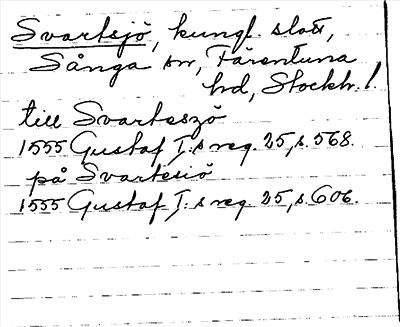 Svartsjö, kungl. slott,
Sånga sn, Färentuna
hd, Stockh. l.
till Svarteszö
1555 Gustaf I:s reg. 25, s. 568.
på Svartesiö
1555 Gustaf I:s reg. 25, s. 606.